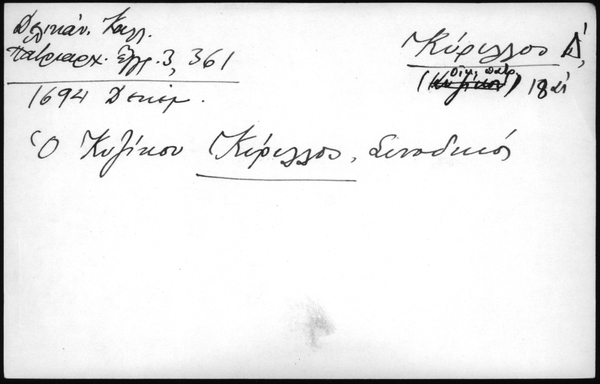 Δελικάν. Καλλ.
Πατριαρχ. Έγγρ. 3, 361
1694 Δεκεμ.
Κύριλλος Δ΄,
(Κυζίκου Οἰκ. πατρ.) 18
Ὁ Κυζίκου Κύριλλος, Συνοδικός